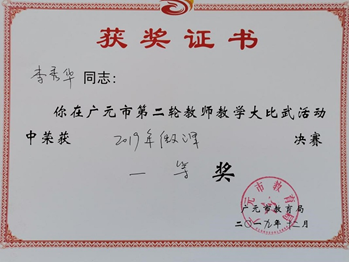 获奖证书
李秀华同志：
你在广元市第二轮教师教学大比武活动
中荣获 2019年 课 决赛
一等奖
广元市教育局
广元市教育局
二〇一九年十二月